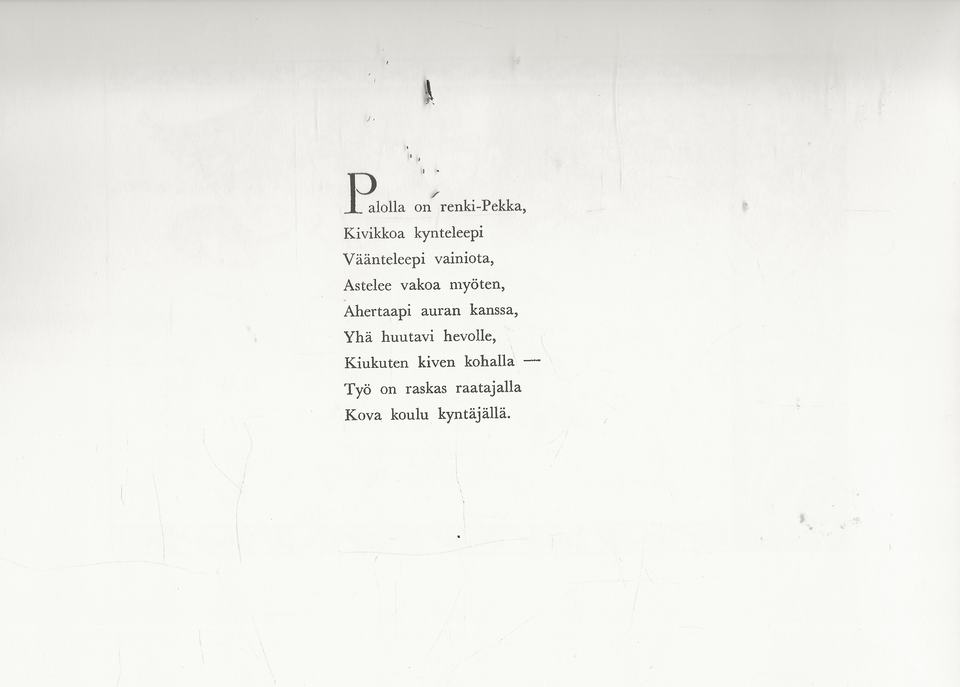 Palolla on renki-Pekka,
Kivikkoa kynteleepi
Väänteleepi vainiota,
Astelee vakoa myöten,
Ahertaapi auran kanssa,
Yhä huutavi hevolle,
Kiukuten kiven kohalla —
Työ on raskas raatajalla
Kova koulu kyntäjällä.